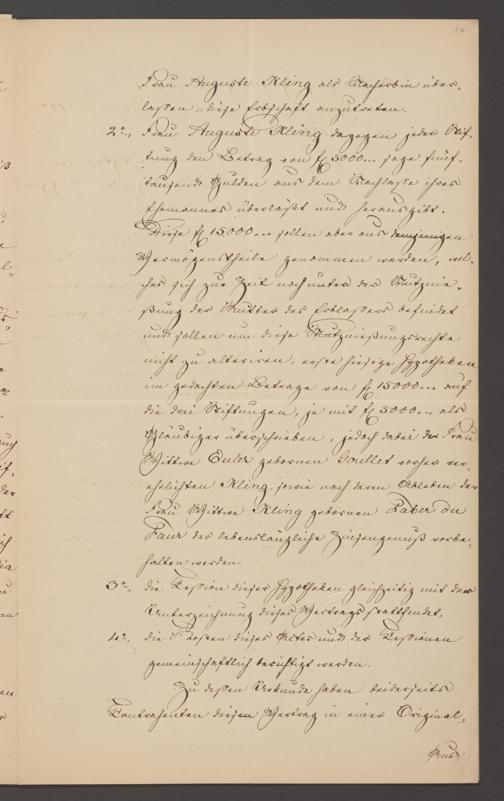 Frau Auguste Kling als Nacherbin über-
laßen diese Erbschaft anzutreten.
2°., Frau Auguste Kling dagegen jeder Stif-
tung den Betrag von f. 5000.-. sage fünf-
tausend Gulden aus dem Nachlaße ihres
Ehemannes überläßt und herausgibt.
Diese f. 15000.-. sollen aber aus demjenigen
Vermögenstheile genommen werden, wel-
cher sich zur Zeit noch unter der Nutznie-
ßung der Mutter des Erblassers befindet
und sollen um diese Nutznießungsrechte
nicht zu alteriren, erste hiesige Hypotheken
im gedachten Betrage von f. 15000.-. auf
die drei Stiftungen, je mit f. 5000.-. als
Gläubiger überschrieben, jedoch dabei der Frau
Wittwe Euler gebornen Goullet vorher ver-
ehelichten Kling, sowie nach deren Ableben der
Frau Wittwe Kling gebornen
der lebenslängliche Zinsengenuß vorbe-
halten werden.
3°., die Cession dieser Hypotheken gleichzeitig mit der
Unterzeichnung dieses Vertrags statthindet.
4°., die Kosten dieses Aktes und der Cessionen
gemeinschaftlich berichtigt werden.
Zu deßen Urkunde haben beiderseits
Contrahenten diesen Vertrag in einer Original-